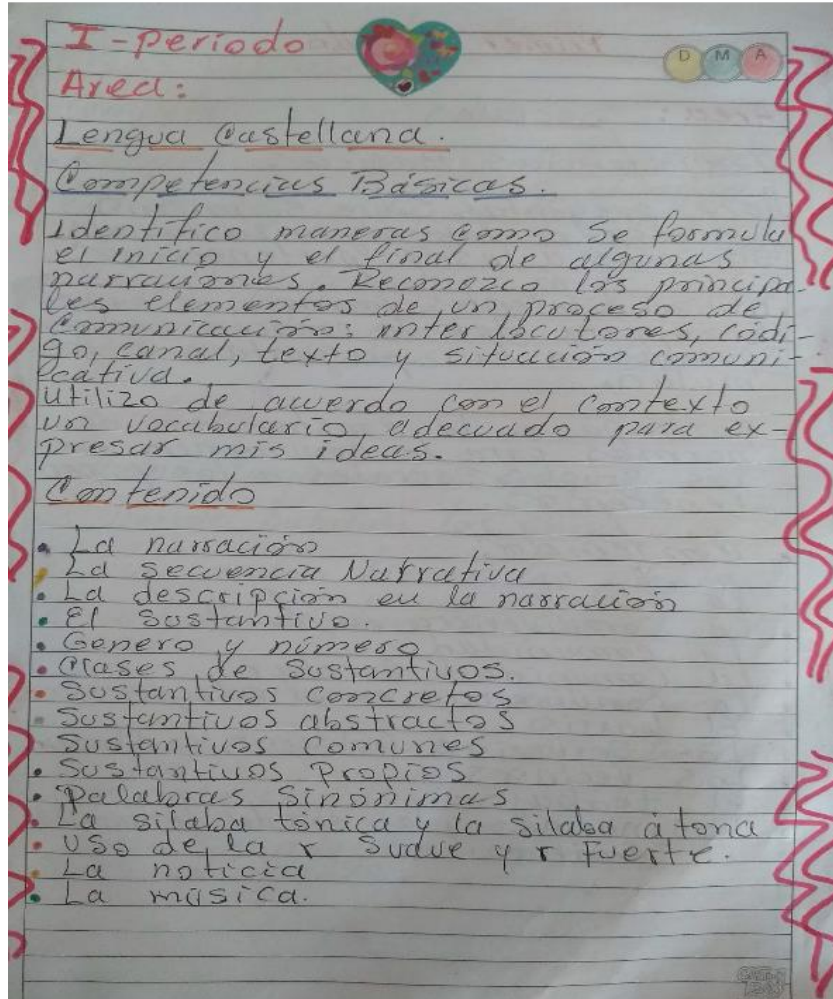 I-periodo
D M A
Area:
Lengua Castellana.
Competencias Básicas.
Identifico maneras como se formula
el inicio y el final de algunas
narraciones. Reconozco los principa-
les elementos de un proceso de
comunicación: interlocutores, códi-
go, canal, texto y situación comuni-
cativa.
utilizo de acuerdo con el contexto
un vocabulario adecuado para ex-
presar mis ideas.
Contenido
• La narración
• La secuencia Narrativa
• La descripción en la narración
• El Sustantivo.
• Genero y número
• Clases de Sustantivos.
• Sustantivos concretos
• Sustantivos abstractos
Sustantivos Comunes
• Sustantivos Propios
• Palabras Sinónimas
• La silaba tónica y la silaba átona
• Uso de la r Suave y r Fuerte.
• La noticia
• La música.